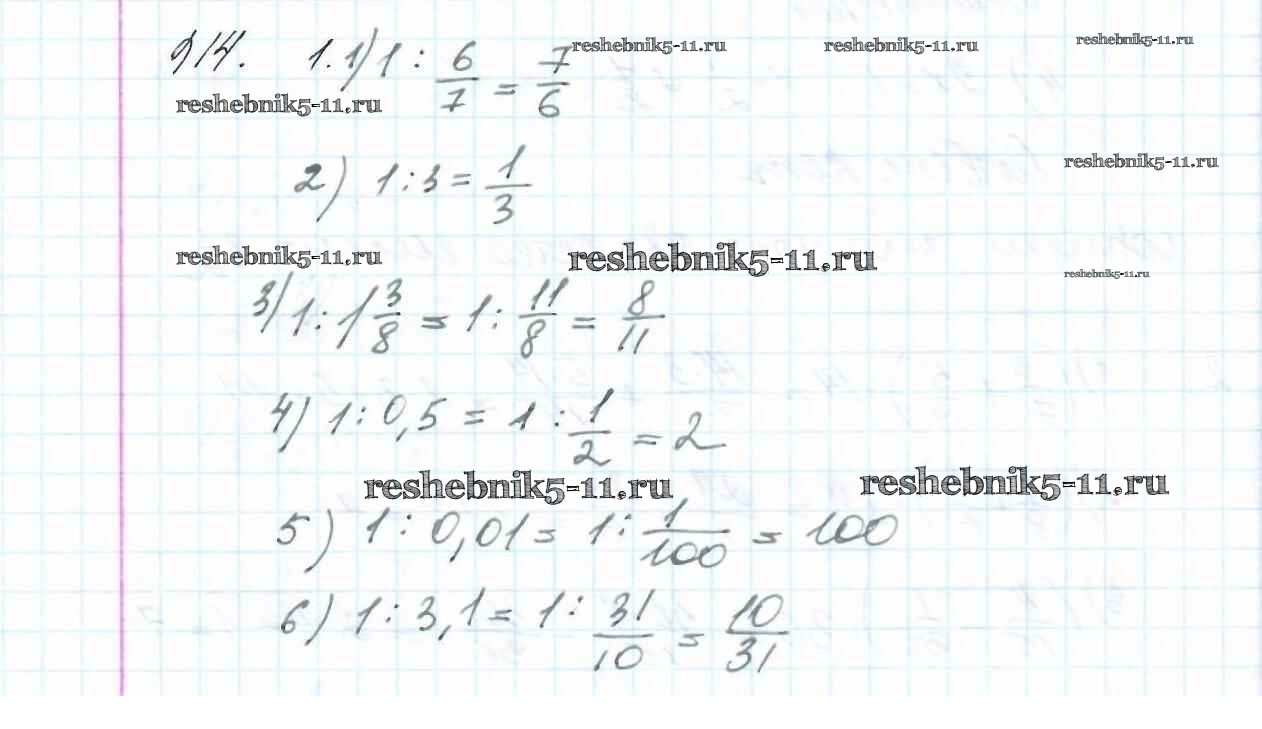 914. 1. 1) 1 : 6/7 = 7/6
reshebnik5-11.ru reshebnik5-11.ru reshebnik5-11.ru
reshebnik5-11.ru
2) 1 : 3 = 1/3
reshebnik5-11.ru
reshebnik5-11.ru reshebnik5-11.ru reshebnik5-11.ru
3) 1 : 1 3/8 = 1 : 11/8 = 8/11
4) 1 : 0,5 = 1 : 1/2 = 2
reshebnik5-11.ru reshebnik5-11.ru
5) 1 : 0,01 = 1 : 1/100 = 100
6) 1 : 3,1 = 1 : 31/10 = 10/31